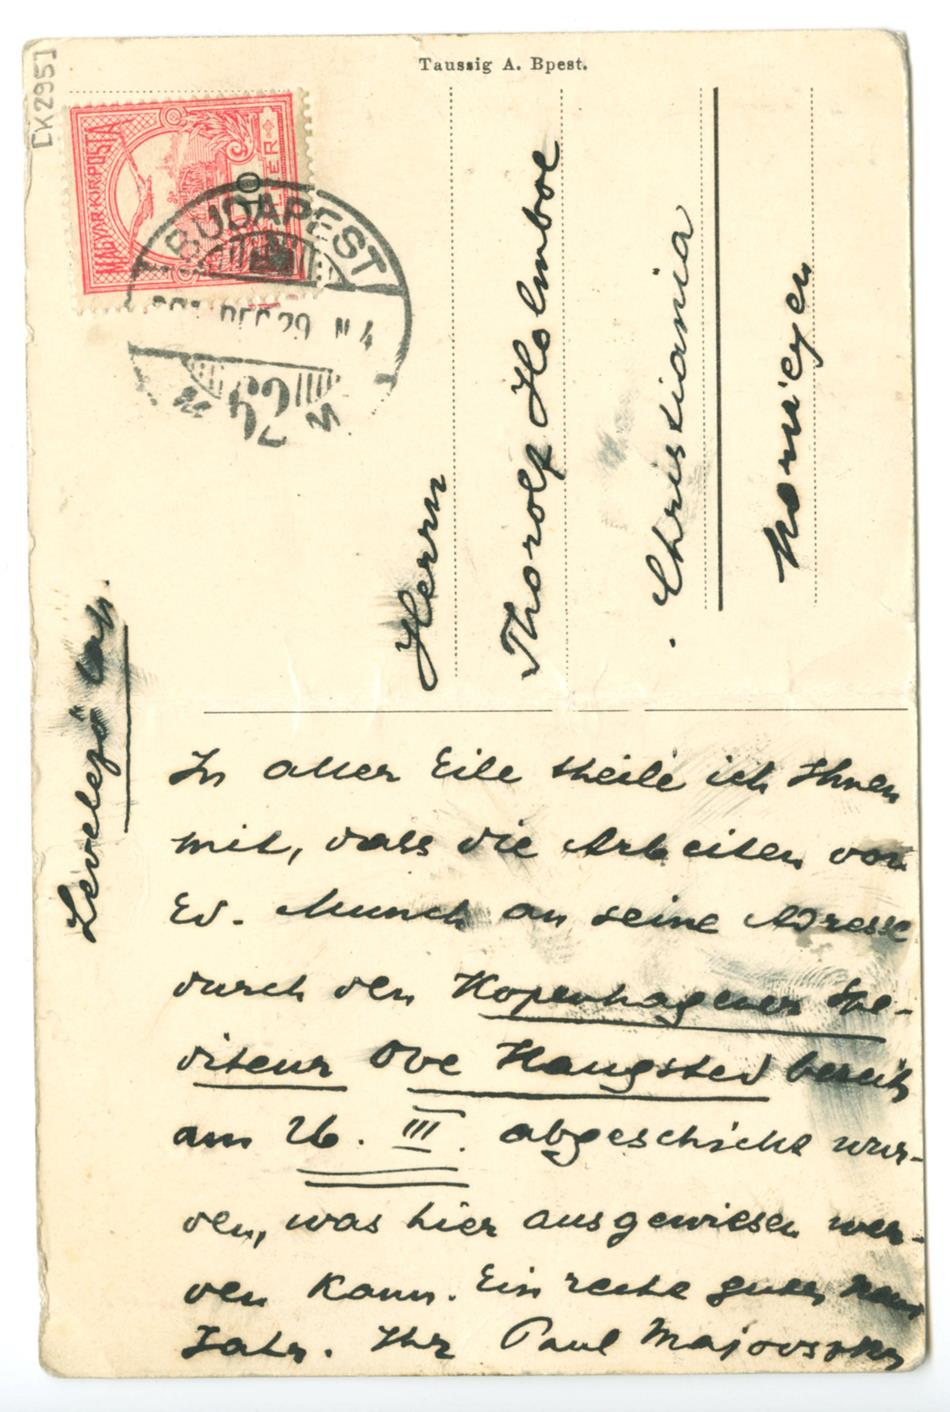 Taussig A. Bpest.
[K295]
MAGYAR KIR. POSTA
10
BUDAPEST
DEC 29 N 4
Herrn
Thorolf Holmboe
Christiania
Norwegen
Levelező lap.
In aller Eile theile ich Ihnen
mit, dass die Arbeiten von
Ed. Munch an seine Adresse
durch den Kopenhagener Spe-
diteur Ove Haugsted bereits
am 26. III. abgeschickt wur-
den, was hier ausgewiesen wer-
den kann. Ein recht gutes Neues
Jahr. Ihr Paul Majovszky